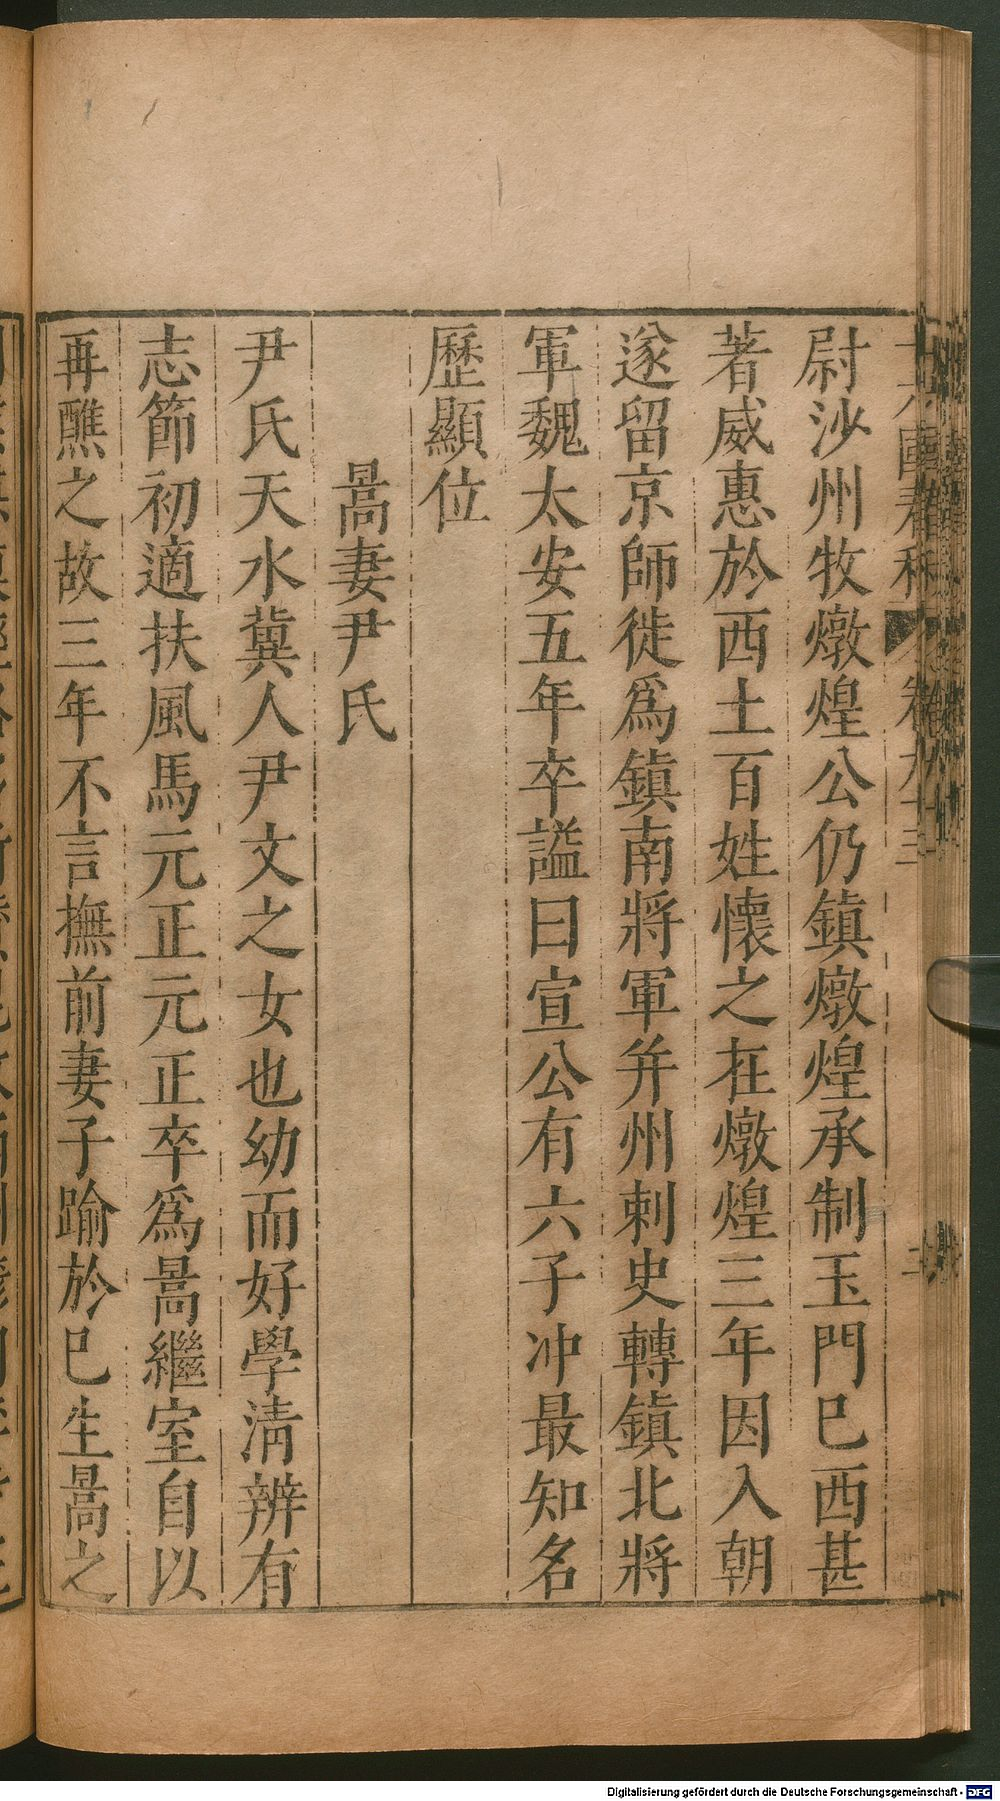 尉沙州牧燉煌公仍鎮燉煌承制玉門巳西甚
著威惠於西土百姓懷之在燉煌三年因入朝
遂留京師徙爲鎮南將軍并州刺史轉鎮北將
軍魏太安五年卒謚曰宣公有六子冲最知名
歷顯位
暠妻尹氏
尹氏天水冀人尹文之女也幼而好學淸辨有
志節初適扶風馬元正元正卒爲暠繼室自以
再醮之故三年不言撫前妻子踰於巳生暠之
Digitalisierung gefördert durch die Deutsche Forschungsgemeinschaft - DFG